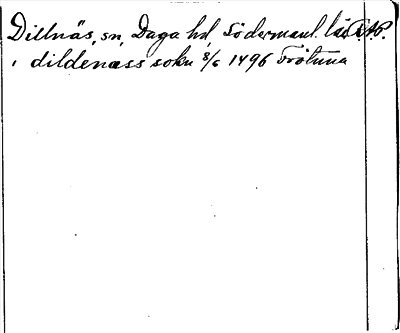 Dillnäs, sn, Daga hd, Södermanl. län
i dildenæss sokn 8/6 1496 Frötuna